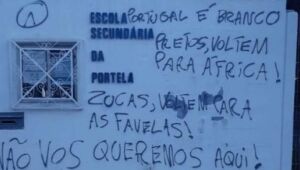 ESCOLA
SECUNDÁRIA
DA
PORTELA
PORTUGAL É BRANCO
PRETOS, VOLTEM
PARA ÁFRICA!
ZUCAS, VOLTEM PARA
AS FAVELAS!
NÃO VOS QUEREMOS AQUI!